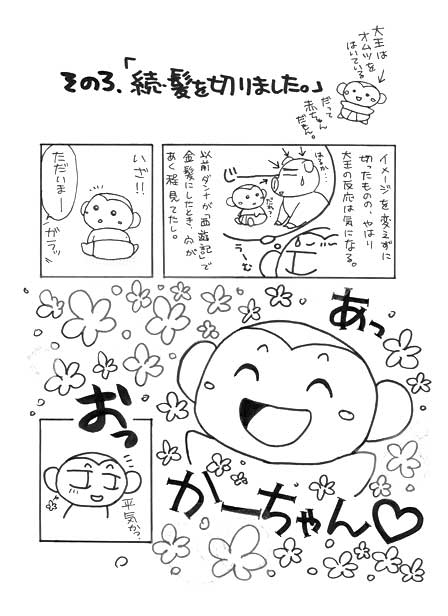 その3.「続・髪を切りました。」
大王は
オムツを
はいている
だって
赤ちゃん
だもん。
イメージを変えずに
切ったものの、やはり
大王の反応は気になる。
はるか…
じー
だぁれ?
うーむ
以前ダンナが「西遊記」で
金髪にしたとき、穴が
あく程見てたし。
いざ!!
ただいまー
ガラッ
あっ
おっ
かーちゃん♡
平気かっ